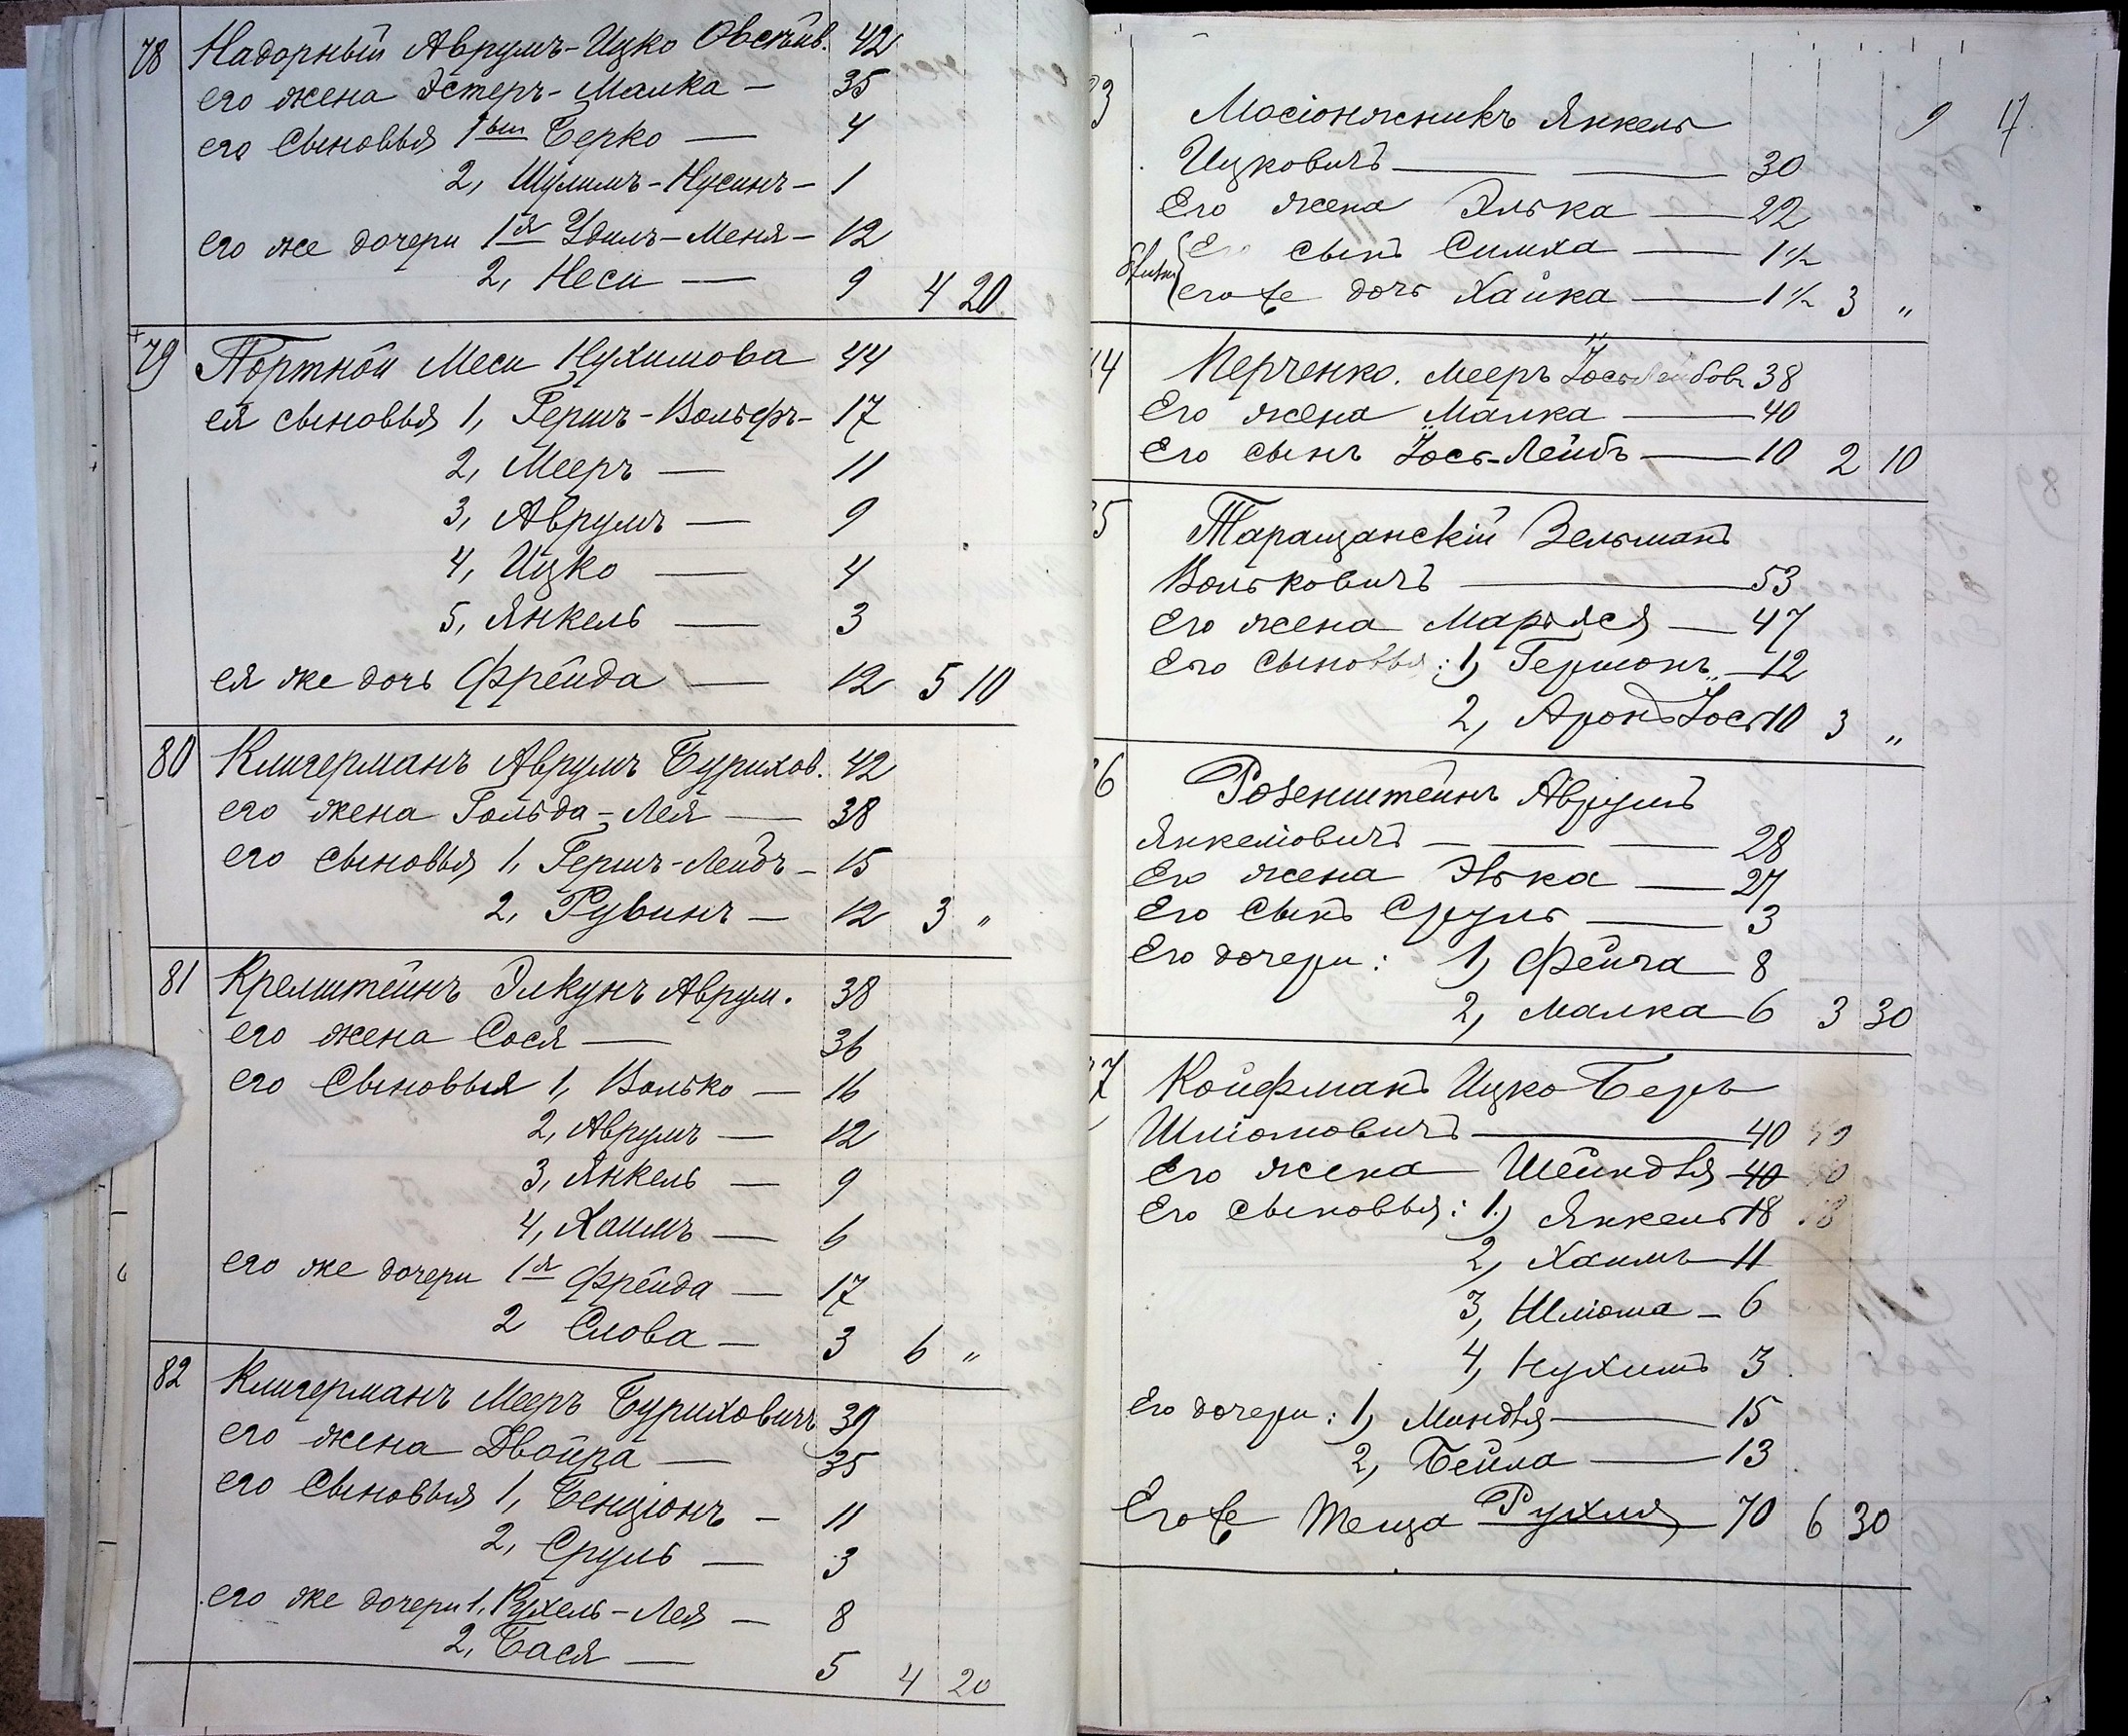 78 Надорный Аврумъ-Ицко Овсѣйв. 42
его жена Эстеръ-Малка — 35
его Сыновья 1ый Берко — 4
2, Шулимъ-Нусинъ — 1
его же дочери 1я Удиль-Меня — 12
2, Неси — 9 4 20
79 Портной Меси Нухимова 44
ея сыновья 1, Гершъ-Вольфъ — 17
2, Мееръ — 11
3, Аврумъ — 9
4, Ицко — 4
5, Янкель — 3
ея же дочь Фрейда — 12 5 10
80 Клигерманъ Аврумъ Бурихов. 42
его жена Гольда-Лея — 38
его сыновья 1, Гершъ-Лейбъ — 15
2, Рувинъ — 12 3 "
81 Кремштейнъ Элкунъ Аврум. 38
его жена Сося — 36
его Сыновья 1, Волько — 16
2, Аврумъ — 12
3, Янкель — 9
4, Хаимъ — 6
его же дочери 1я Фрейда — 17
2 Слова — 3 6 "
82 Клигерманъ Мееръ Буриховичъ 39
его жена Двойра — 35
его Сыновья 1, Бенціонъ — 11
2, Сруль — 3
его же дочери 1, Рухель-Лея — 8
2, Бася — 5 4 20
9 17
3 Масіонжникъ Янкель
Ицковичъ — 30
Его жена Элька — 22
Его сынъ Симха — 1½
его же дочь Хайка — 1½ 3 "
4 Перченко. Мееръ Іось-Лейбов. 38
Его жена Малка — 40
Его сынъ Іось-Лейбъ — 10 2 10
5 Таращанскій Зельманъ
Вольковичъ — 53
Его жена Марьяся — 47
Его сыновья: 1, Гершонъ — 12
2, Аронъ Іось 10 3 "
6 Розенштейнъ Аврумъ
Янкеліовичъ — 28
Его жена Элька — 27
Его Сынъ Сруль — 3
Его дочери: 1, Фейга — 8
2, Малка — 6 3 30
7 Койфманъ Ицко Беръ
Шліомовичъ — 40
Его жена Шейндля — 40
Его сыновья: 1, Янкель 18
2, Хаимъ — 11
3, Шліома — 6
4, Нухимъ 3
Его дочери: 1, Миндля — 15
2, Бейла — 13
Его же теща Рухля 70 6 30